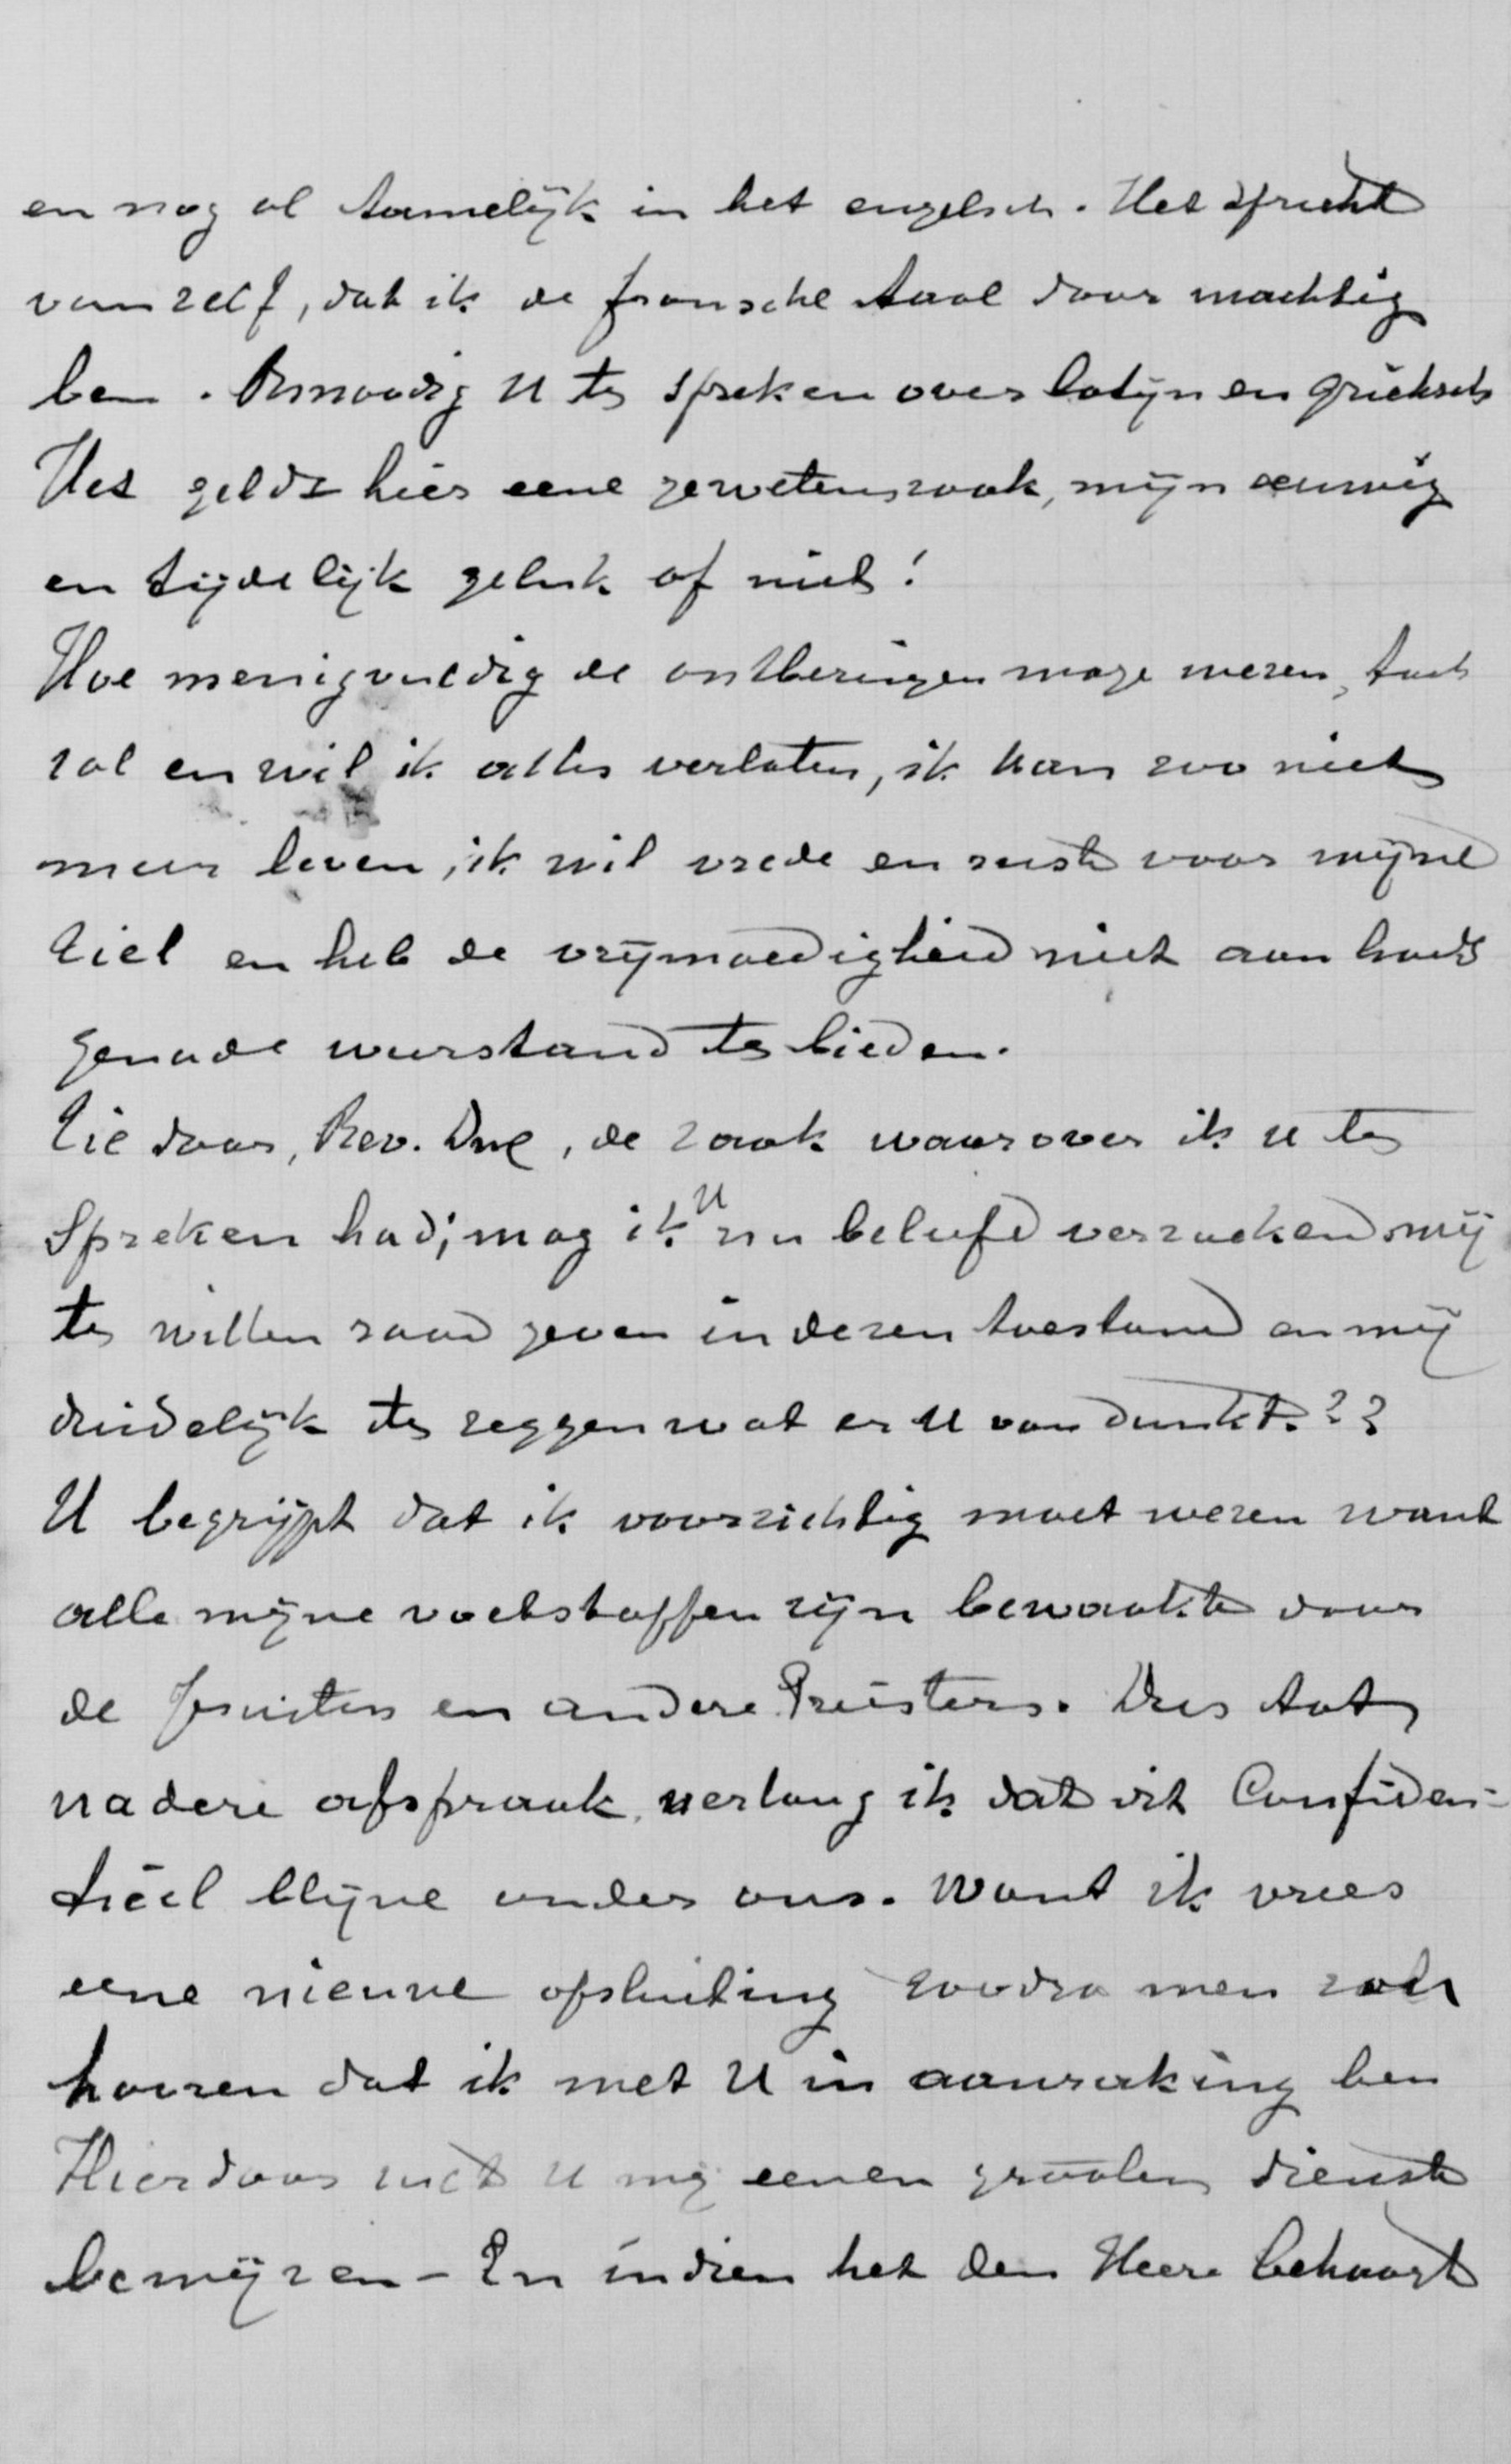 en nog al tamelijk in het engelsch. Het spreekt
van zelf, dat ik de fransche taal door machtig
ben. Onnoodig U te spreken over latijn en grieksch
Het geldt hier eene gewetenszaak, mijn eeuwig
en tijdelijk geluk of niet!
Hoe menigvuldig de ontberingen moge wezen, toch
zal en wil ik alles verlaten, ik kan zoo niet
meer leven, ik wil vrede en rust voor mijne
Ziel en heb de vrijmoedigheid niet aan Gods
genade weerstand te bieden.
Zie daar, Rev. Dne, de zaak waarover ik U te
spreken had; mag ik U nu beleefd verzoeken mij
te willen raad geven in dezen toestand en mij
duidelijk te zeggen wat er U van dunkt.??
U begrijpt dat ik voorzichtig moet wezen want
alle mijne voetstappen zijn bewaakt door
de Jesuiten en andere Priesters. Dus tot
nadere afspraak, verlang ik dat dit Confiden-
tiëel blijve onder ons. Want ik vrees
eene nieuwe opsluiting zoodra men zou
hooren dat ik met U in aanraking ben
Hierdoor zult U mij eenen grooten dienst
bewijzen - En indien het den Heere behaagt